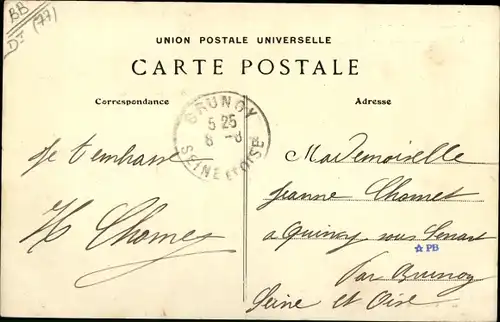 BB
(77)
DT
UNION POSTALE UNIVERSELLE
CARTE POSTALE
Correspondance
Adresse
BRUNOY
5 25
8 -8
SEINE ET OISE
Je t'embrasse
H Chomet
Mademoiselle
Jeanne Chomet
a Quincy sous Senart
PB
Par Brunoy
Seine et Oise